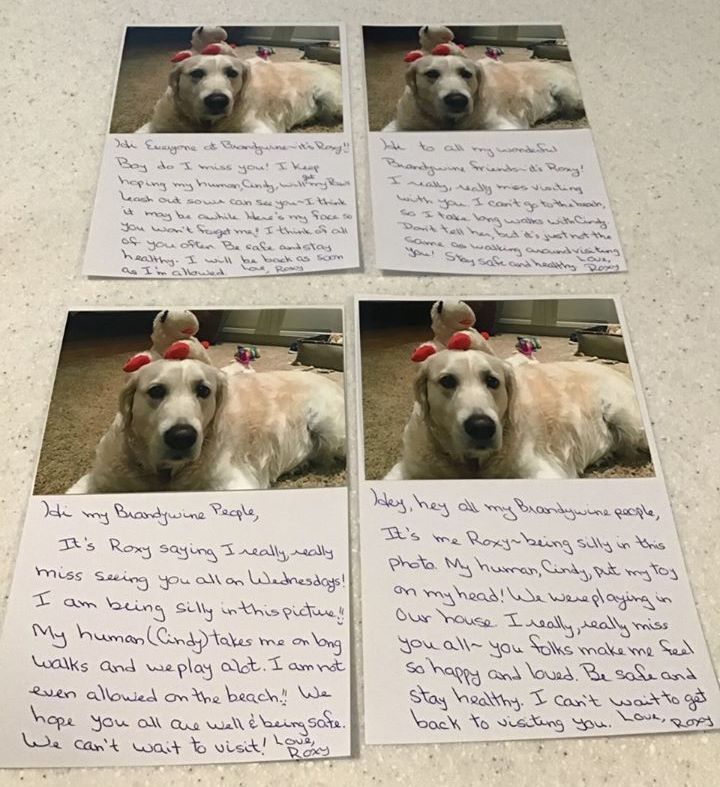 Hi Everyone at Brandywine~it's Roxy!!
Boy do I miss you! I keep
hoping my human, Cindy, will get my Rau's
leash out so we can see you~I think
it may be awhile. Here's my face so
you won't forget me! I think of all
of you often. Be safe and stay
healthy. I will be back as soon
as I'm allowed. Love, Roxy
Hi to all my wonderful
Brandywine friends~it's Roxy!
I really, really miss visiting
with you. I can't go to the beach,
so I take long walks with Cindy.
Don't tell her, but it's just not the
same as walking around visiting
you! Stay safe and healthy Love,
Roxy
Hi my Brandywine People,
It's Roxy saying I really, really
miss seeing you all on Wednesdays!
I am being silly in this picture!!
My human (Cindy) takes me on long
walks and we play alot. I am not
even allowed on the beach!! We
hope you all are well & being safe.
We can't wait to visit! Love,
Roxy
Hey, hey all my Brandywine people,
It's me Roxy~being silly in this
photo. My human, Cindy, put my toy
on my head! We were playing in
our house. I really, really miss
you all~ you folks make me feel
so happy and loved. Be safe and
stay healthy. I can't wait to get
back to visiting you. Love, Roxy